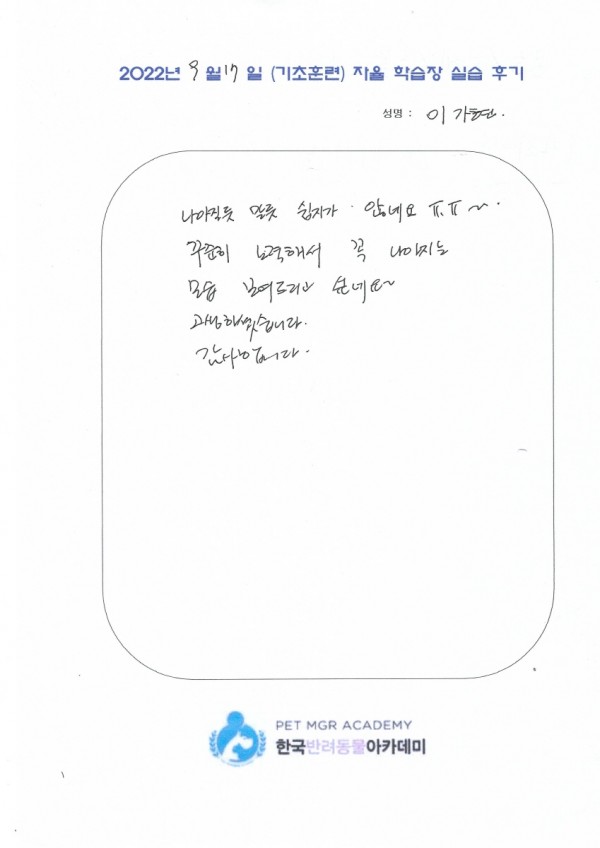 2022년 9 월 17 일 (기초훈련) 자율 학습장 실습 후기
성명 : 이가현.
나아질듯 말듯 쉽지가 않네요 ㅠ.ㅠ~
꾸준히 노력해서 꼭 나아지는
모습 보여드리고 싶네요~
고생하셨습니다.
감사합니다.
PET MGR ACADEMY
한국반려동물아카데미